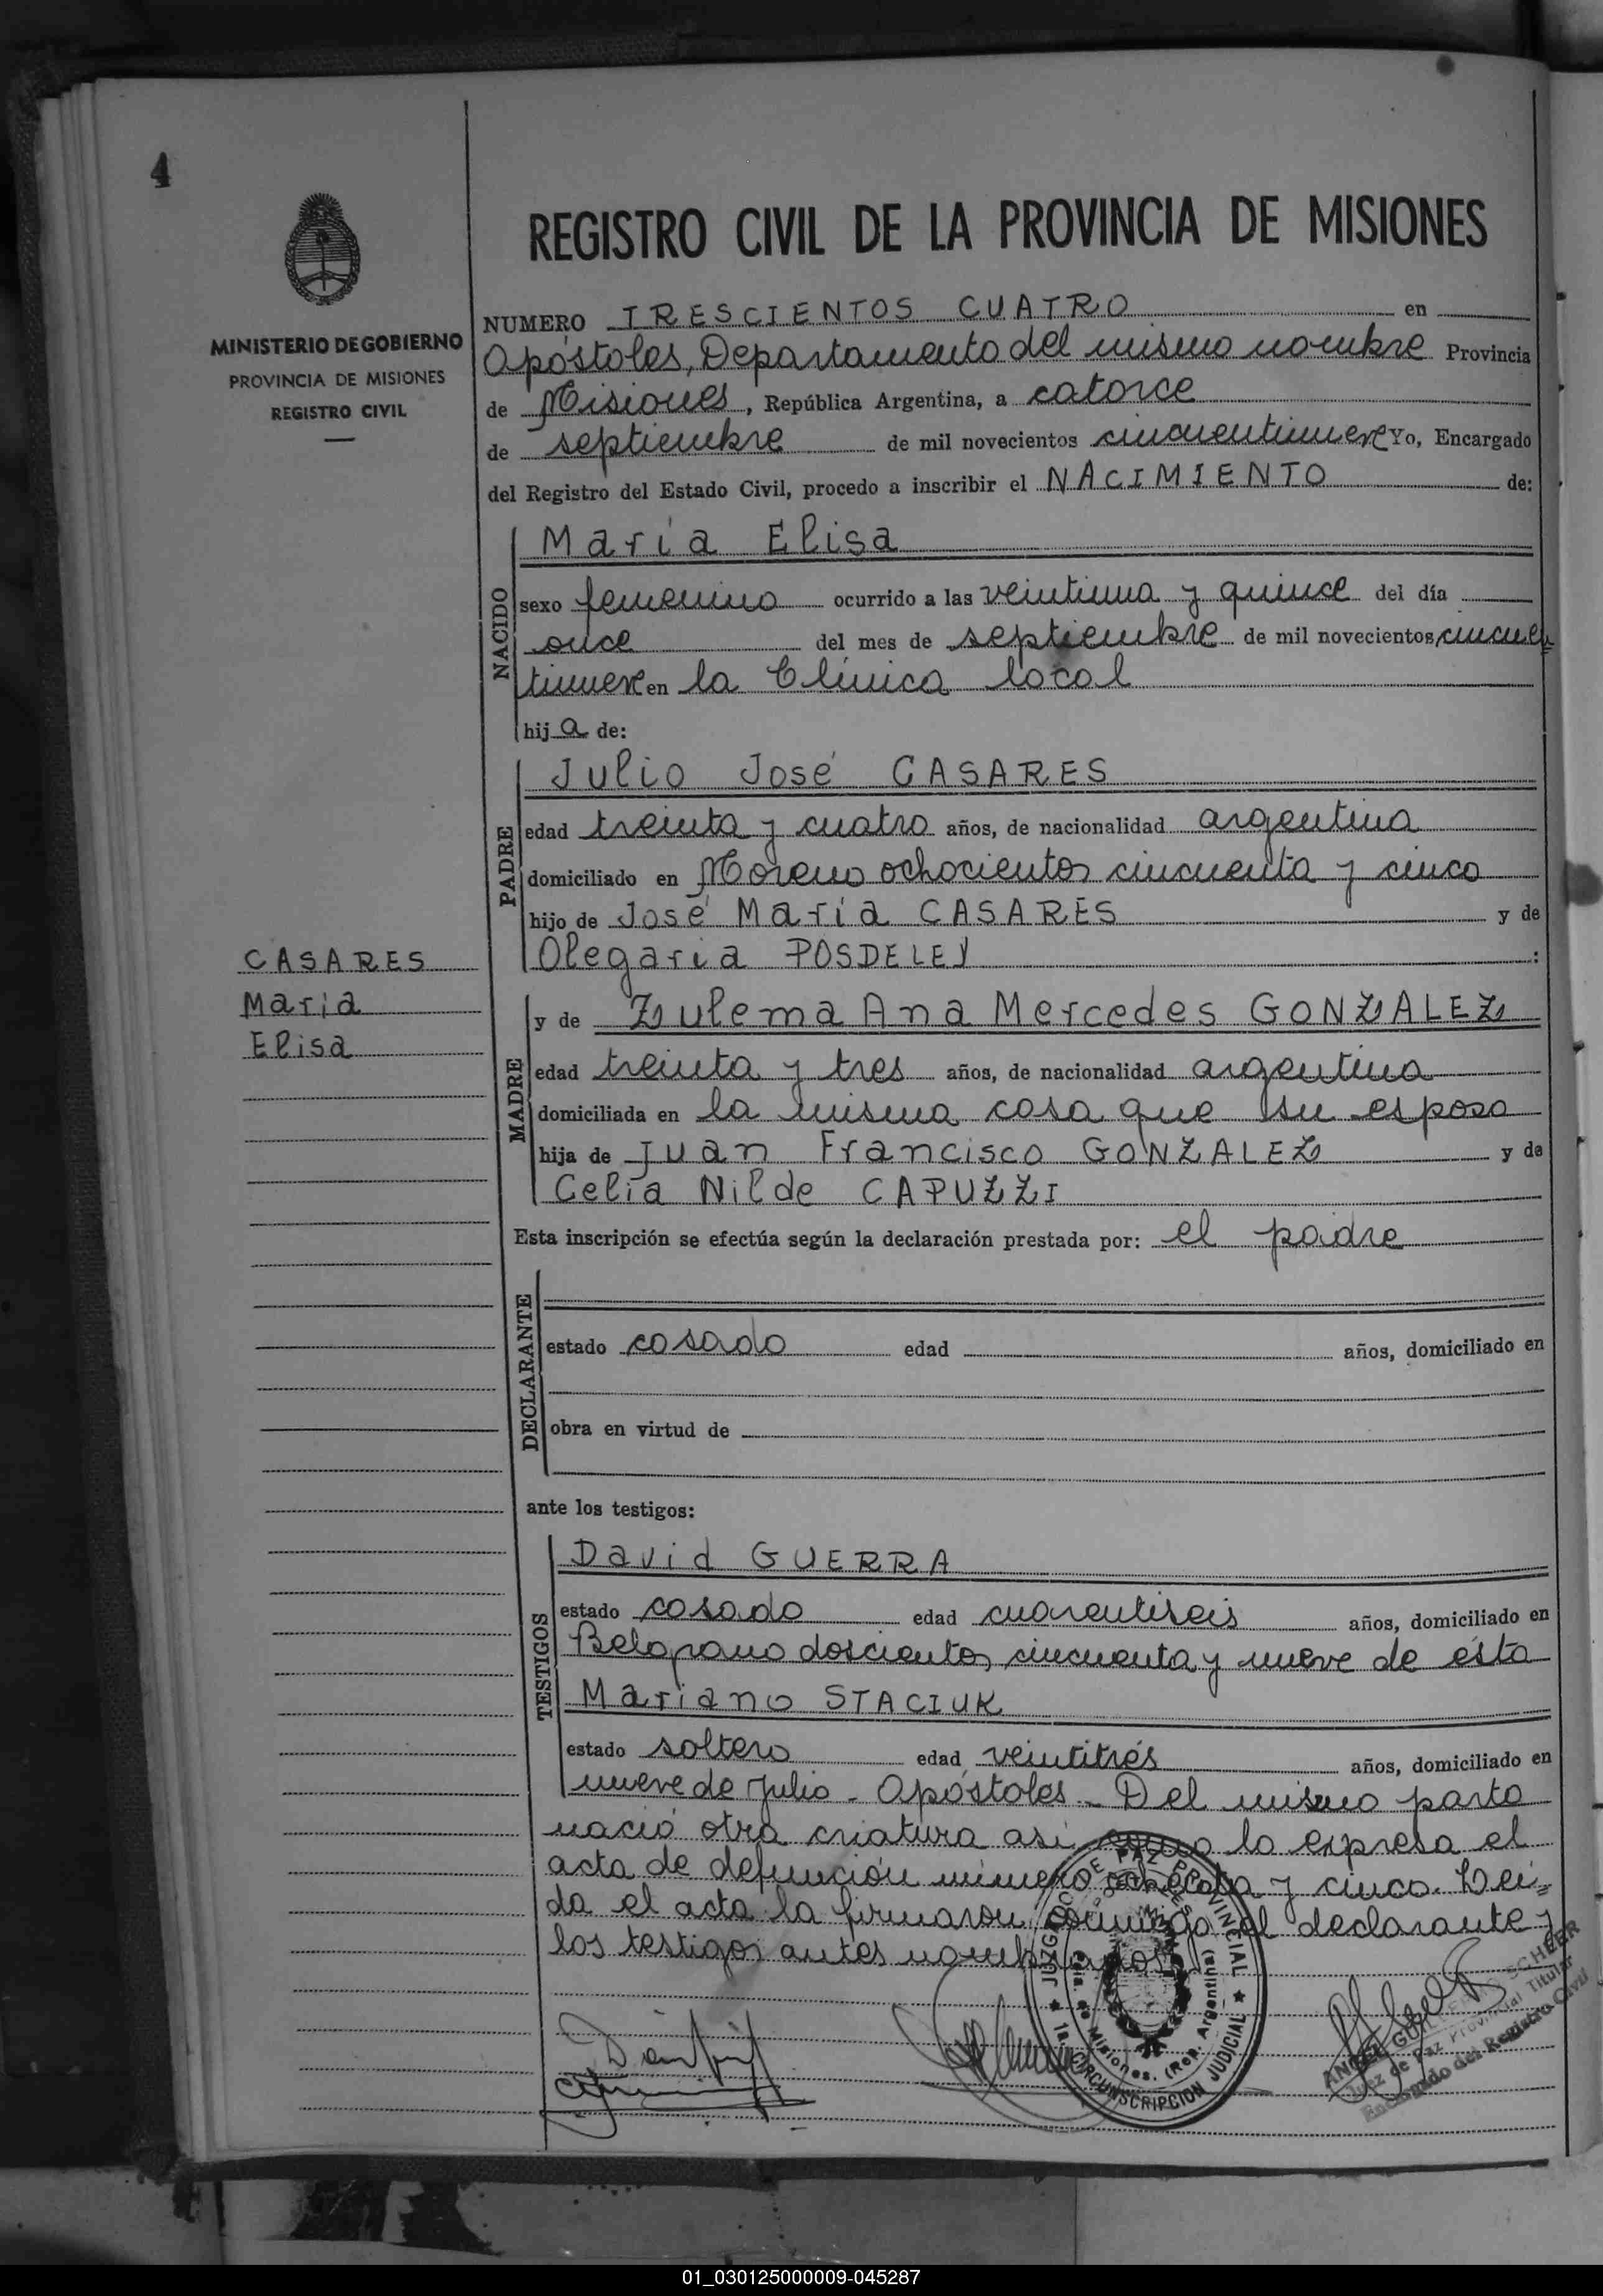 4
MINISTERIO DE GOBIERNO
PROVINCIA DE MISIONES
REGISTRO CIVIL
REGISTRO CIVIL DE LA PROVINCIA DE MISIONES
NUMERO TRESCIENTOS CUATRO en
Apóstoles, Departamento del mismo nombre Provincia
de Misiones, República Argentina, a catorce
de septiembre de mil novecientos cincuentinueve Yo, Encargado
del Registro del Estado Civil, procedo a inscribir el NACIMIENTO de:
NACIDO
María Elisa
sexo femenino ocurrido a las veintiuna y quince del día
once del mes de septiembre de mil novecientos cincuen=
tinueve en la Clínica local
hija de:
PADRE
Julio José CASARES
edad treinta y cuatro años, de nacionalidad argentina
domiciliado en Moreno ochocientos cincuenta y cinco
hijo de José María CASARES y de
Olegaria POSDELEY :
CASARES
María
Elisa
MADRE
y de Zulema Ana Mercedes GONZALEZ
edad treinta y tres años, de nacionalidad argentina
domiciliada en la misma casa que su esposo
hija de Juan Francisco GONZALEZ y de
Celia Nilde CAPUZZI
Esta inscripción se efectúa según la declaración prestada por: el padre
DECLARANTE
estado casado edad años, domiciliado en
obra en virtud de
ante los testigos:
TESTIGOS
David GUERRA
estado casado edad cuarentiseis años, domiciliado en
Belgrano doscientos cincuenta y nueve de ésta
Mariano STACIUK
estado soltero edad veintitrés años, domiciliado en
nueve de Julio - Apóstoles - Del mismo parto
nació otra criatura así como lo expresa el
acta de defunción número ochenta y cinco. Leí=
da el acta la firmaron conmigo el declarante y
los testigos antes nombrados
JUZGADO DE PAZ PROVINCIAL
1a. CIRCUNSCRIPCION JUDICIAL
de Misiones. (Rep. Argentina)
ANGEL GUILLERMO SCHEER
Juez de Paz Provincial Titular
Encargado del Registro Civil
01_030125000009-045287